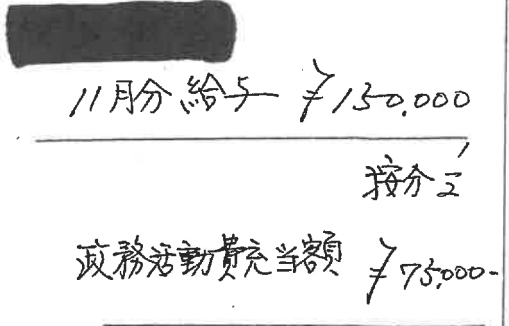 11月分 給与 ¥150.000
按分 1/2
政務活動費充当額 ¥75.000-